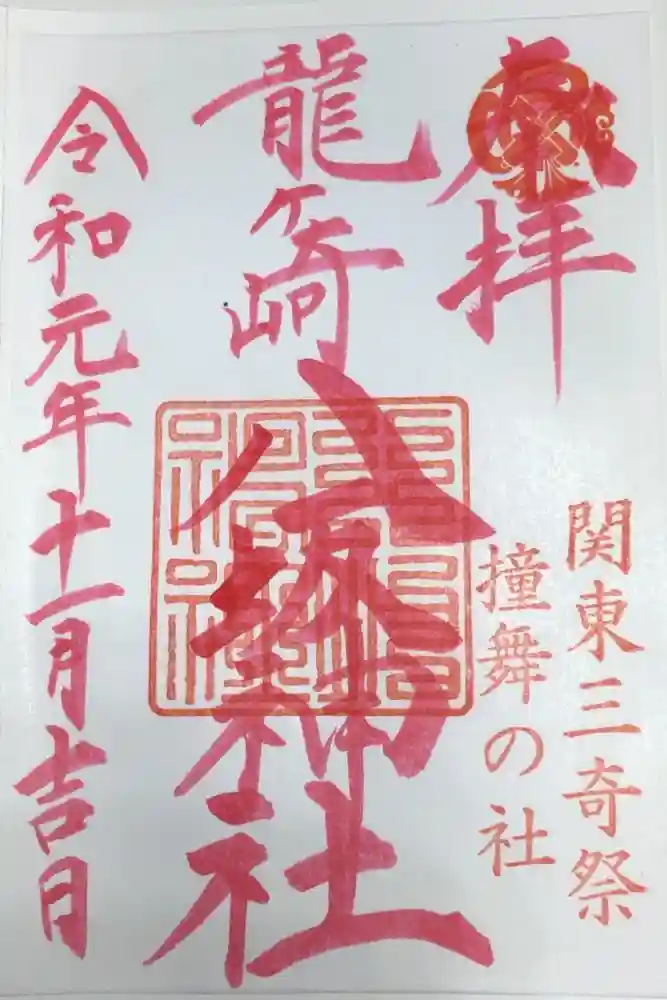 奉拝
関東三奇祭
撞舞の社
龍ヶ崎
八坂神社
令和元年十一月吉月